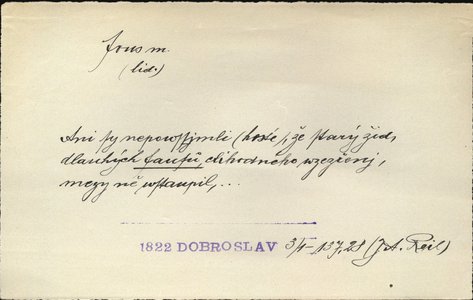 fous m.
(lid.)
Ani ty nepowssimli (hosté), že starý žid,
dlauhých fausů, ctihodného wzezřenj,
mezy ně wstaupil, ...
1822 DOBROSLAV 3/1-137,28 (J. A. Rail)